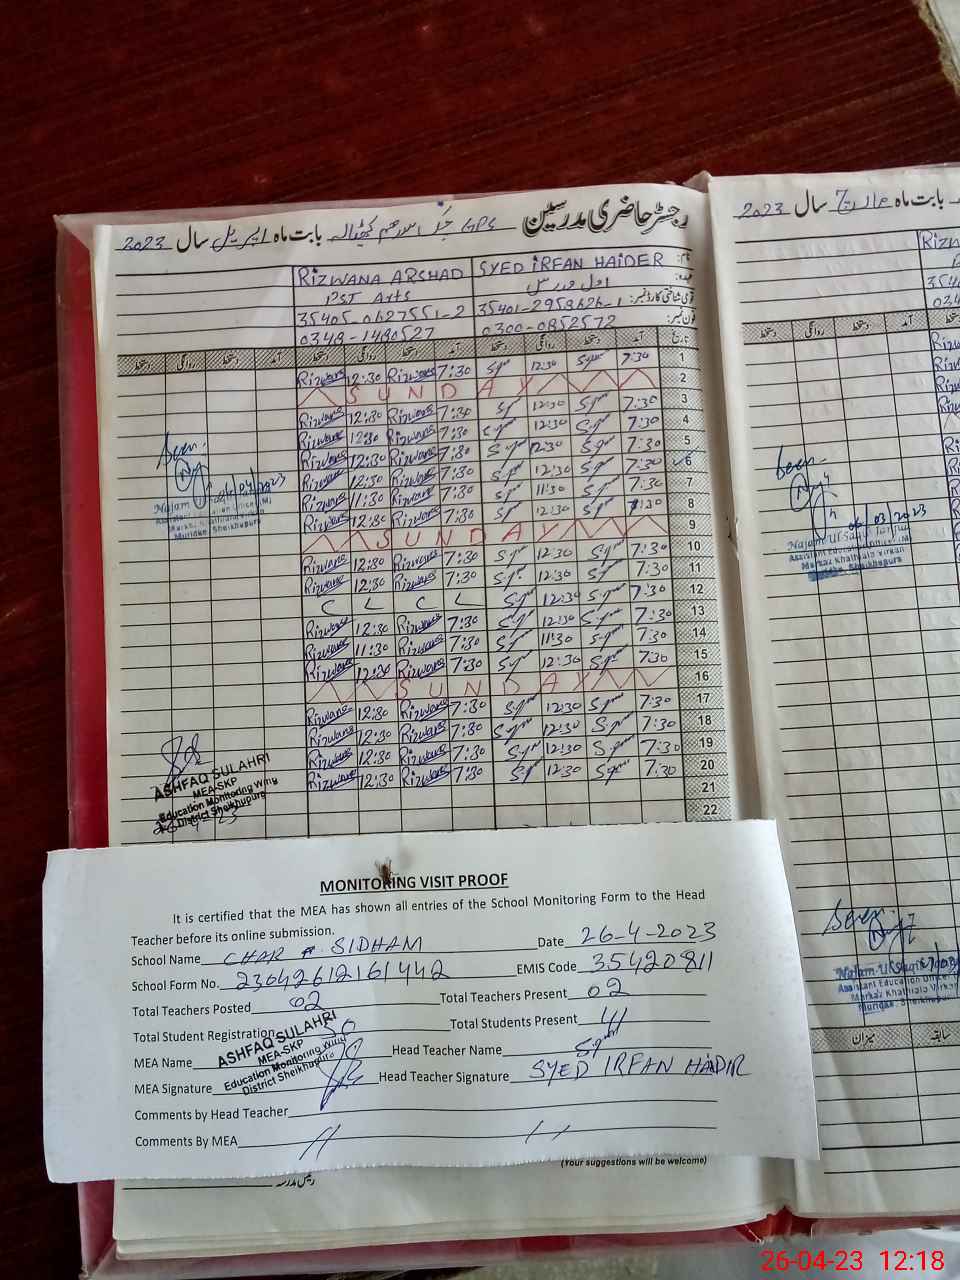 رجسٹر حاضری مدرسین GPS بابت ماہ اپریل سال 2023
نام:
SYED IRFAN HAIDER
RIZWANA ARSHAD
عہدہ:
PST Arts
قومی شناختی کارڈ نمبر:
35401-2958626-1
35405-0627551-2
فون نمبر:
0300-0852572
0348-1480527
تاریخ آمد دستخط روانگی دستخط آمد دستخط روانگی دستخط آمد دستخط روانگی دستخط
1 7:30 12:30 7:30 Rizwana 12:30 Rizwana
2 SUNDAY
3 7:30 12:30 7:30 Rizwana 12:30 Rizwana
4 7:30 12:30 7:30 Rizwana 12:30 Rizwana
5 7:30 12:30 7:30 Rizwana 12:30 Rizwana
6 7:30 12:30 7:30 Rizwana 12:30 Rizwana
7 7:30 11:30 7:30 Rizwana 11:30 Rizwana
8 7:30 12:30 7:30 Rizwana 12:30 Rizwana
9 SUNDAY
10 7:30 12:30 7:30 Rizwana 12:30 Rizwana
11 7:30 12:30 7:30 Rizwana 12:30 Rizwana
12 7:30 12:30 C L C L
13 7:30 12:30 7:30 Rizwana 12:30 Rizwana
14 7:30 11:30 7:30 Rizwana 11:30 Rizwana
15 7:30 12:30 7:30 Rizwana 12:30 Rizwana
16 SUNDAY
17 7:30 12:30 7:30 Rizwana 12:30 Rizwana
18 7:30 12:30 7:30 Rizwana 12:30 Rizwana
19 7:30 12:30 7:30 Rizwana 12:30 Rizwana
20 7:30 12:30 7:30 Rizwana 12:30 Rizwana
21
22
Seen.
Najam
Muridke Sheikhupura
ASHFAQ SULAHRI
MEA-SKP
Education Monitoring Wing
District Sheikhupura
MONITORING VISIT PROOF
It is certified that the MEA has shown all entries of the School Monitoring Form to the Head
Teacher before its online submission.
School Name CHAR SIDHAM Date 26-4-2023
School Form No. 23042612161442 EMIS Code 35420811
Total Teachers Posted 02 Total Teachers Present 02
Total Student Registration 50 Total Students Present
MEA Name Head Teacher Name
MEA Signature Head Teacher Signature SYED IRFAN HAIDIR
ASHFAQ SULAHRI
MEA-SKP
Education Monitoring Wing
District Sheikhupura
Comments by Head Teacher
Comments By MEA
(Your suggestions will be welcome)
رئیس مدرسہ
بابت ماہ مارچ سال 2023
آمد دستخط روانگی دستخط
Seen.
06/03/2023
Najam Ul Saqib
Assistant Education Officer (M)
Markaz Khathiala Virkan
Muridke, Sheikhupura
Seen
Najam Ul Saqib
Assistant Education Officer
Markaz Khathiala Virkan
Muridke, Sheikhupura
سابقہ میزان
26-04-23 12:18